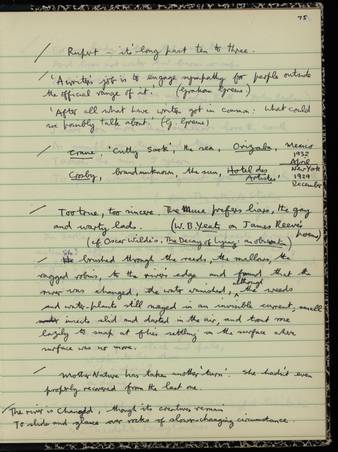 75
/ Rupert – it's long past ten to three.
/ 'A writer's job is to engage sympathy for people outside
the official range of it.' (Graham Greene)
'After all what have writers got in common: what could
we possibly talk about.' (G. Greene)
/ Crane, 'Cutty Sark', the sea, Orizaba, Mexico
1932
April
Crosby, brand unknown, the sun, Hotel des Artistes, New York
1929
December
/ Too true, too sincere. The Muse prefers liars, the gay
and warty lads. (W.B. Yeats on James Reeves'
poem)
(cf Oscar Wilde's The Decay of Lying: an observation)
/ She brushed through the reeds, the mallows, the
ragged robins, to the river's edge and found that the
river was changed, the water vanished, although the weeds
and water-plants still swayed in an invisible current, small
insects slid and darted in the air, and trout rose
lazily to snap at flies settling on the surface where
surface was no more.
/ 'Mother Nature has taken another turn'. She hadn't even
properly recovered from the last one.
/ The river is changed, though its creatures remain
To slide and glance over rocks of slow-changing circumstance.